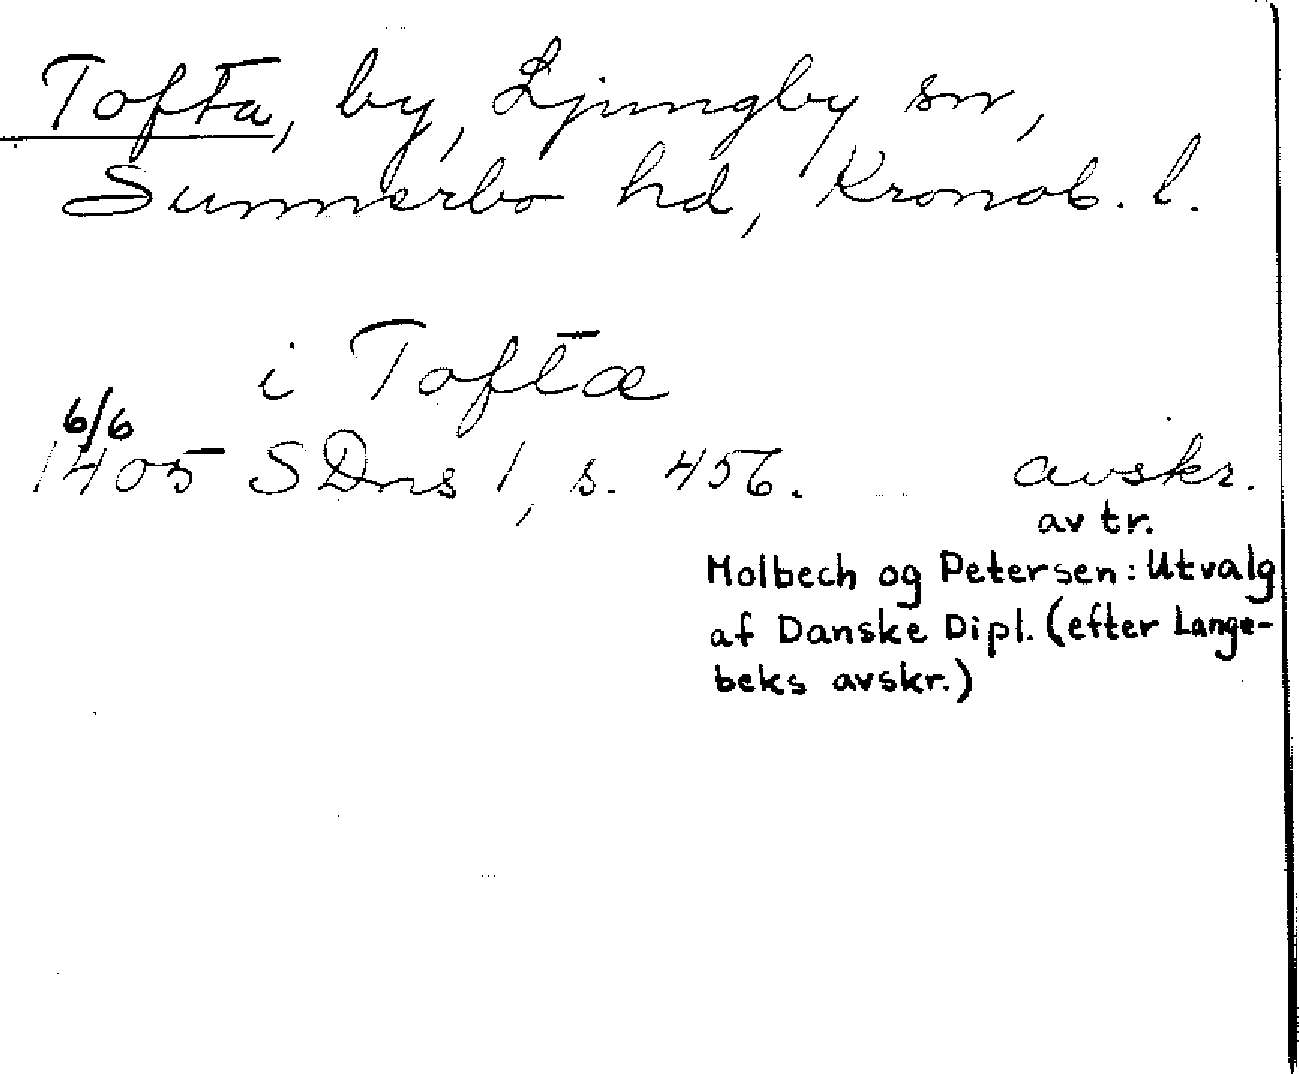 Tofta, by, Ljungby sn,
Sunnerbo hd, Kronob. l.
i Toftæ
6/6
1405 SDns 1, s. 456. avskr.
av tr.
Molbech og Petersen: Utvalg
af Danske Dipl. (efter Lange-
beks avskr.)